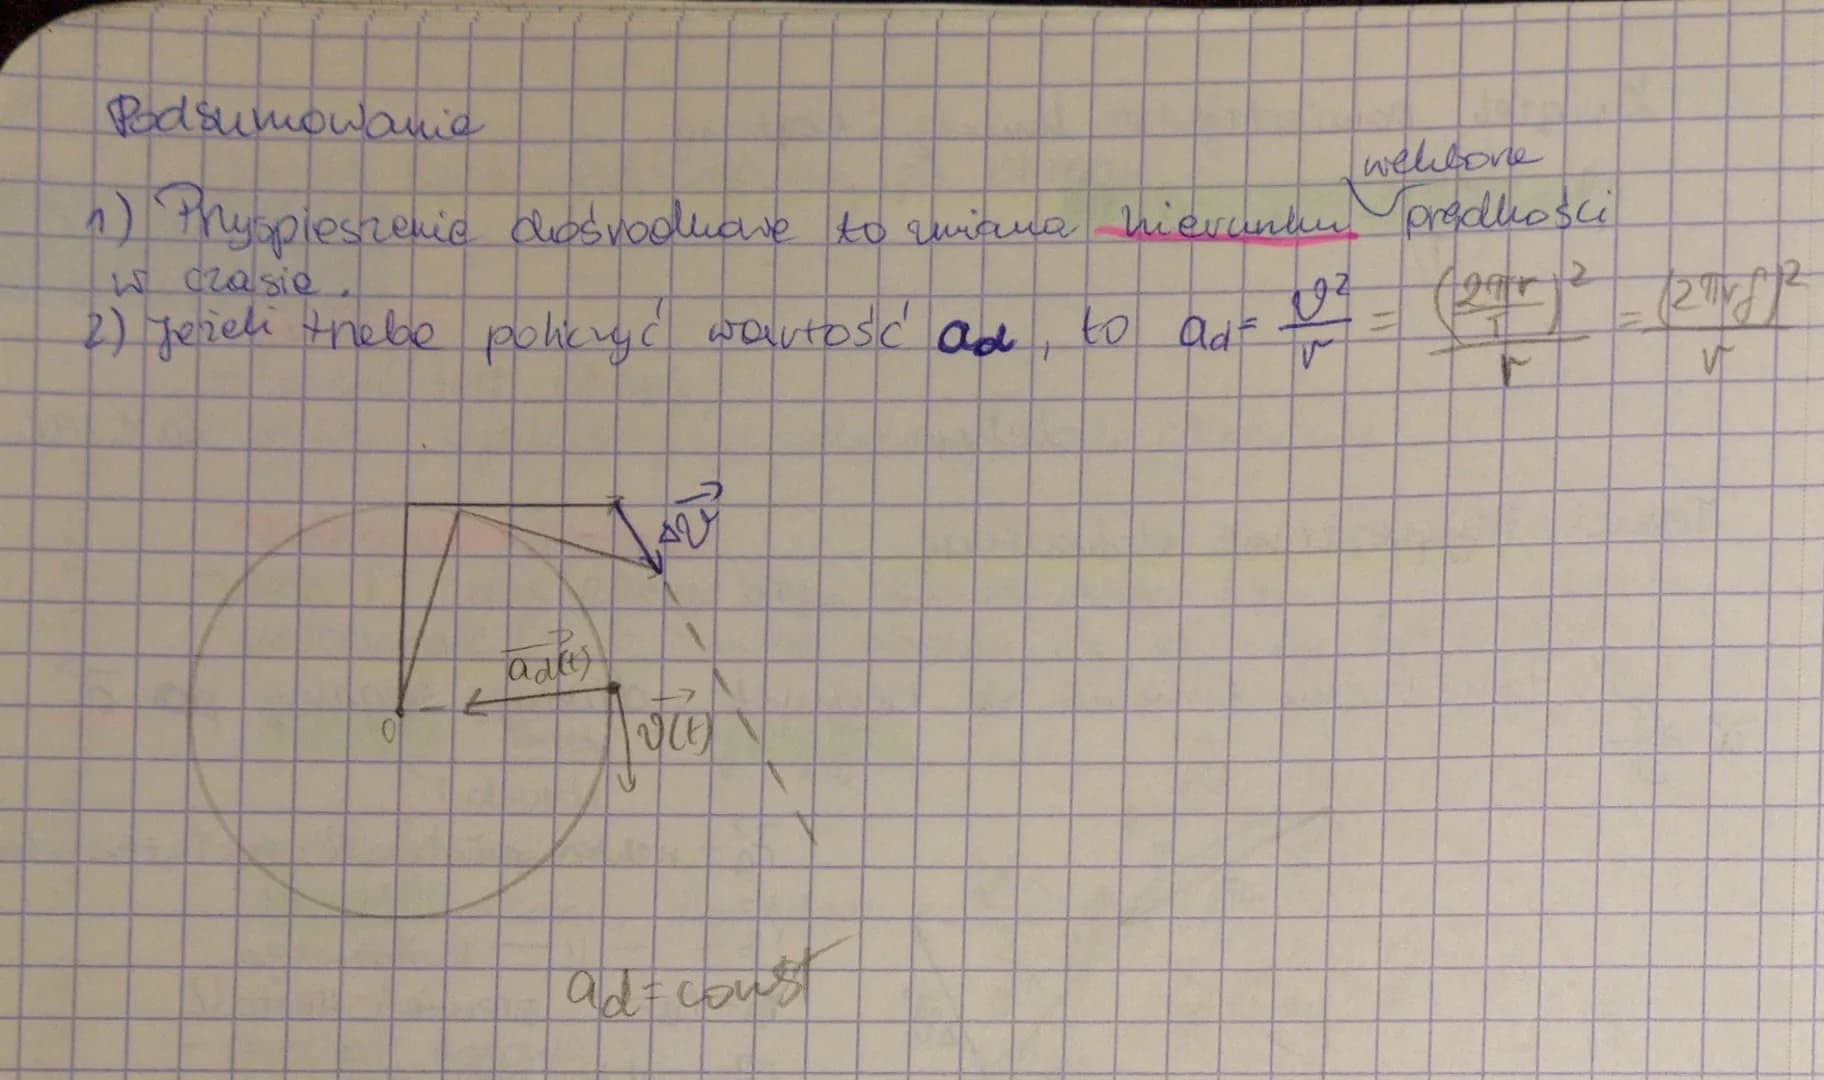 Podsumowanie
wektora
1) Przyspieszenie dośrodkowe to zmiana kierunku prędkości
w czasie.
2) Jeżeli trzeba policzyć wartość ad, to ad = ϑ²/r = (2πr/T)²/r = (2πrf)²/r
Δϑ⃗
ad(t)
ϑ(t)
0
ad = const